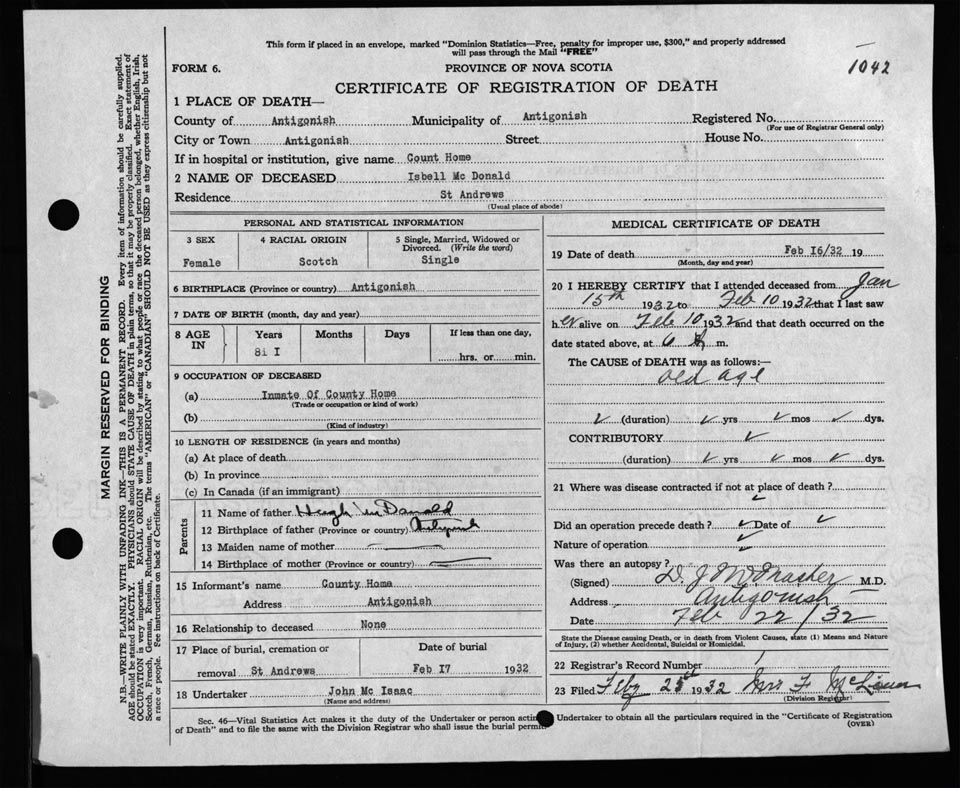 This form if placed in an envelope, marked "Dominion Statistics—Free, penalty for improper use, $300," and properly addressed
will pass through the Mail "FREE"
FORM 6.
PROVINCE OF NOVA SCOTIA
1042
CERTIFICATE OF REGISTRATION OF DEATH
1 PLACE OF DEATH—
County of Antigonish Municipality of Antigonish Registered No.
(For use of Registrar General only)
City or Town Antigonish Street House No.
If in hospital or institution, give name Count Home
2 NAME OF DECEASED Isbell Mc Donald
Residence St Andrews
(Usual place of abode)
PERSONAL AND STATISTICAL INFORMATION
3 SEX 4 RACIAL ORIGIN 5 Single, Married, Widowed or
Divorced. (Write the word)
Female Scotch Single
6 BIRTHPLACE (Province or country) Antigonish
7 DATE OF BIRTH (month, day and year)
8 AGE IN Years Months Days If less than one day,
8i I hrs. or min.
9 OCCUPATION OF DECEASED
(a) Inmate Of County Home
(Trade or occupation or kind of work)
(b)
(Kind of industry)
10 LENGTH OF RESIDENCE (in years and months)
(a) At place of death
(b) In province
(c) In Canada (if an immigrant)
Parents
11 Name of father Hugh McDonald
12 Birthplace of father (Province or country) Antigonish
13 Maiden name of mother —
14 Birthplace of mother (Province or country) —
15 Informant's name County Home
Address Antigonish
16 Relationship to deceased None
17 Place of burial, cremation or Date of burial
removal St Andrews Feb I7 1932
18 Undertaker John Mc Isaac
(Name and address)
MEDICAL CERTIFICATE OF DEATH
19 Date of death Feb I6/32 19
(Month, day and year)
20 I HEREBY CERTIFY that I attended deceased from Jan
15th 1932 to Feb 10 1932 that I last saw
her alive on Feb 10 1932 and that death occurred on the
date stated above, at 6 m.
The CAUSE of DEATH was as follows:—
old age
✓ (duration) ✓ yrs ✓ mos ✓ dys.
CONTRIBUTORY ✓
(duration) ✓ yrs ✓ mos ✓ dys.
21 Where was disease contracted if not at place of death?
✓
Did an operation precede death? ✓ Date of ✓
Nature of operation ✓
Was there an autopsy? ✓
(Signed) D. J. M.D.
Address Antigonish
Date Feb 22/32
State the Disease causing Death, or in death from Violent Causes, state (1) Means and Nature
of Injury, (2) whether Accidental, Suicidal or Homicidal.
22 Registrar's Record Number 1
23 Filed Feby 25th 1932 Mrs F
(Division Registrar)
Sec. 46—Vital Statistics Act makes it the duty of the Undertaker or person acting Undertaker to obtain all the particulars required in the "Certificate of Registration
of Death" and to file the same with the Division Registrar who shall issue the burial permit
(OVER)
MARGIN RESERVED FOR BINDING
N.B.—WRITE PLAINLY WITH UNFADING INK—THIS IS A PERMANENT RECORD. Every item of information should be carefully supplied.
AGE should be stated EXACTLY. PHYSICIANS should STATE CAUSE OF DEATH in plain terms, so that it may be properly classified. Exact statement of
OCCUPATION is very important. RACIAL ORIGIN will be described by stating to what people or race the deceased person belonged, whether English, Irish,
Scotch, French, German, Russian, Ruthenian, etc. The terms "AMERICAN" or "CANADIAN" SHOULD NOT BE USED as they express citizenship but not
a race or people. See instructions on back of Certificate.